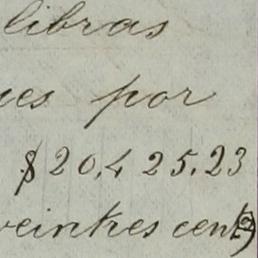 libras
ues por
$20,425.23
veintres cent)